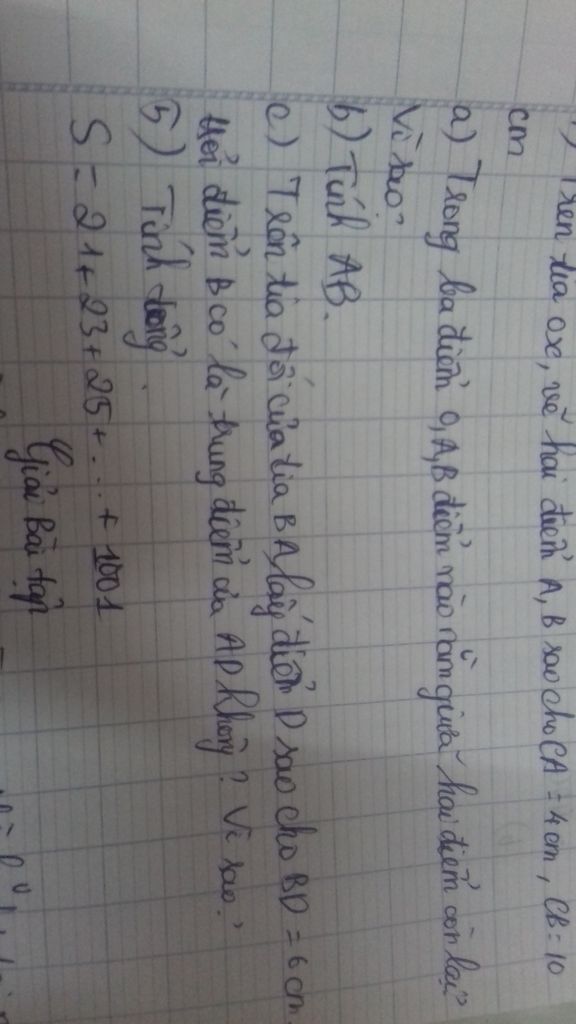 ) Trên tia Ox, vẽ hai điểm A, B sao cho OA = 4 cm, OB = 10
cm
a) Trong ba điểm O, A, B điểm nào nằm giữa hai điểm còn lại?
Vì sao?
b) Tính AB.
c) Trên tia đối của tia BA lấy điểm D sao cho BD = 6 cm.
Hỏi điểm B có là trung điểm của AD không? Vì sao?
5) Tính tổng
S = 21 + 23 + 25 + ... + 1001
Giải bài tập